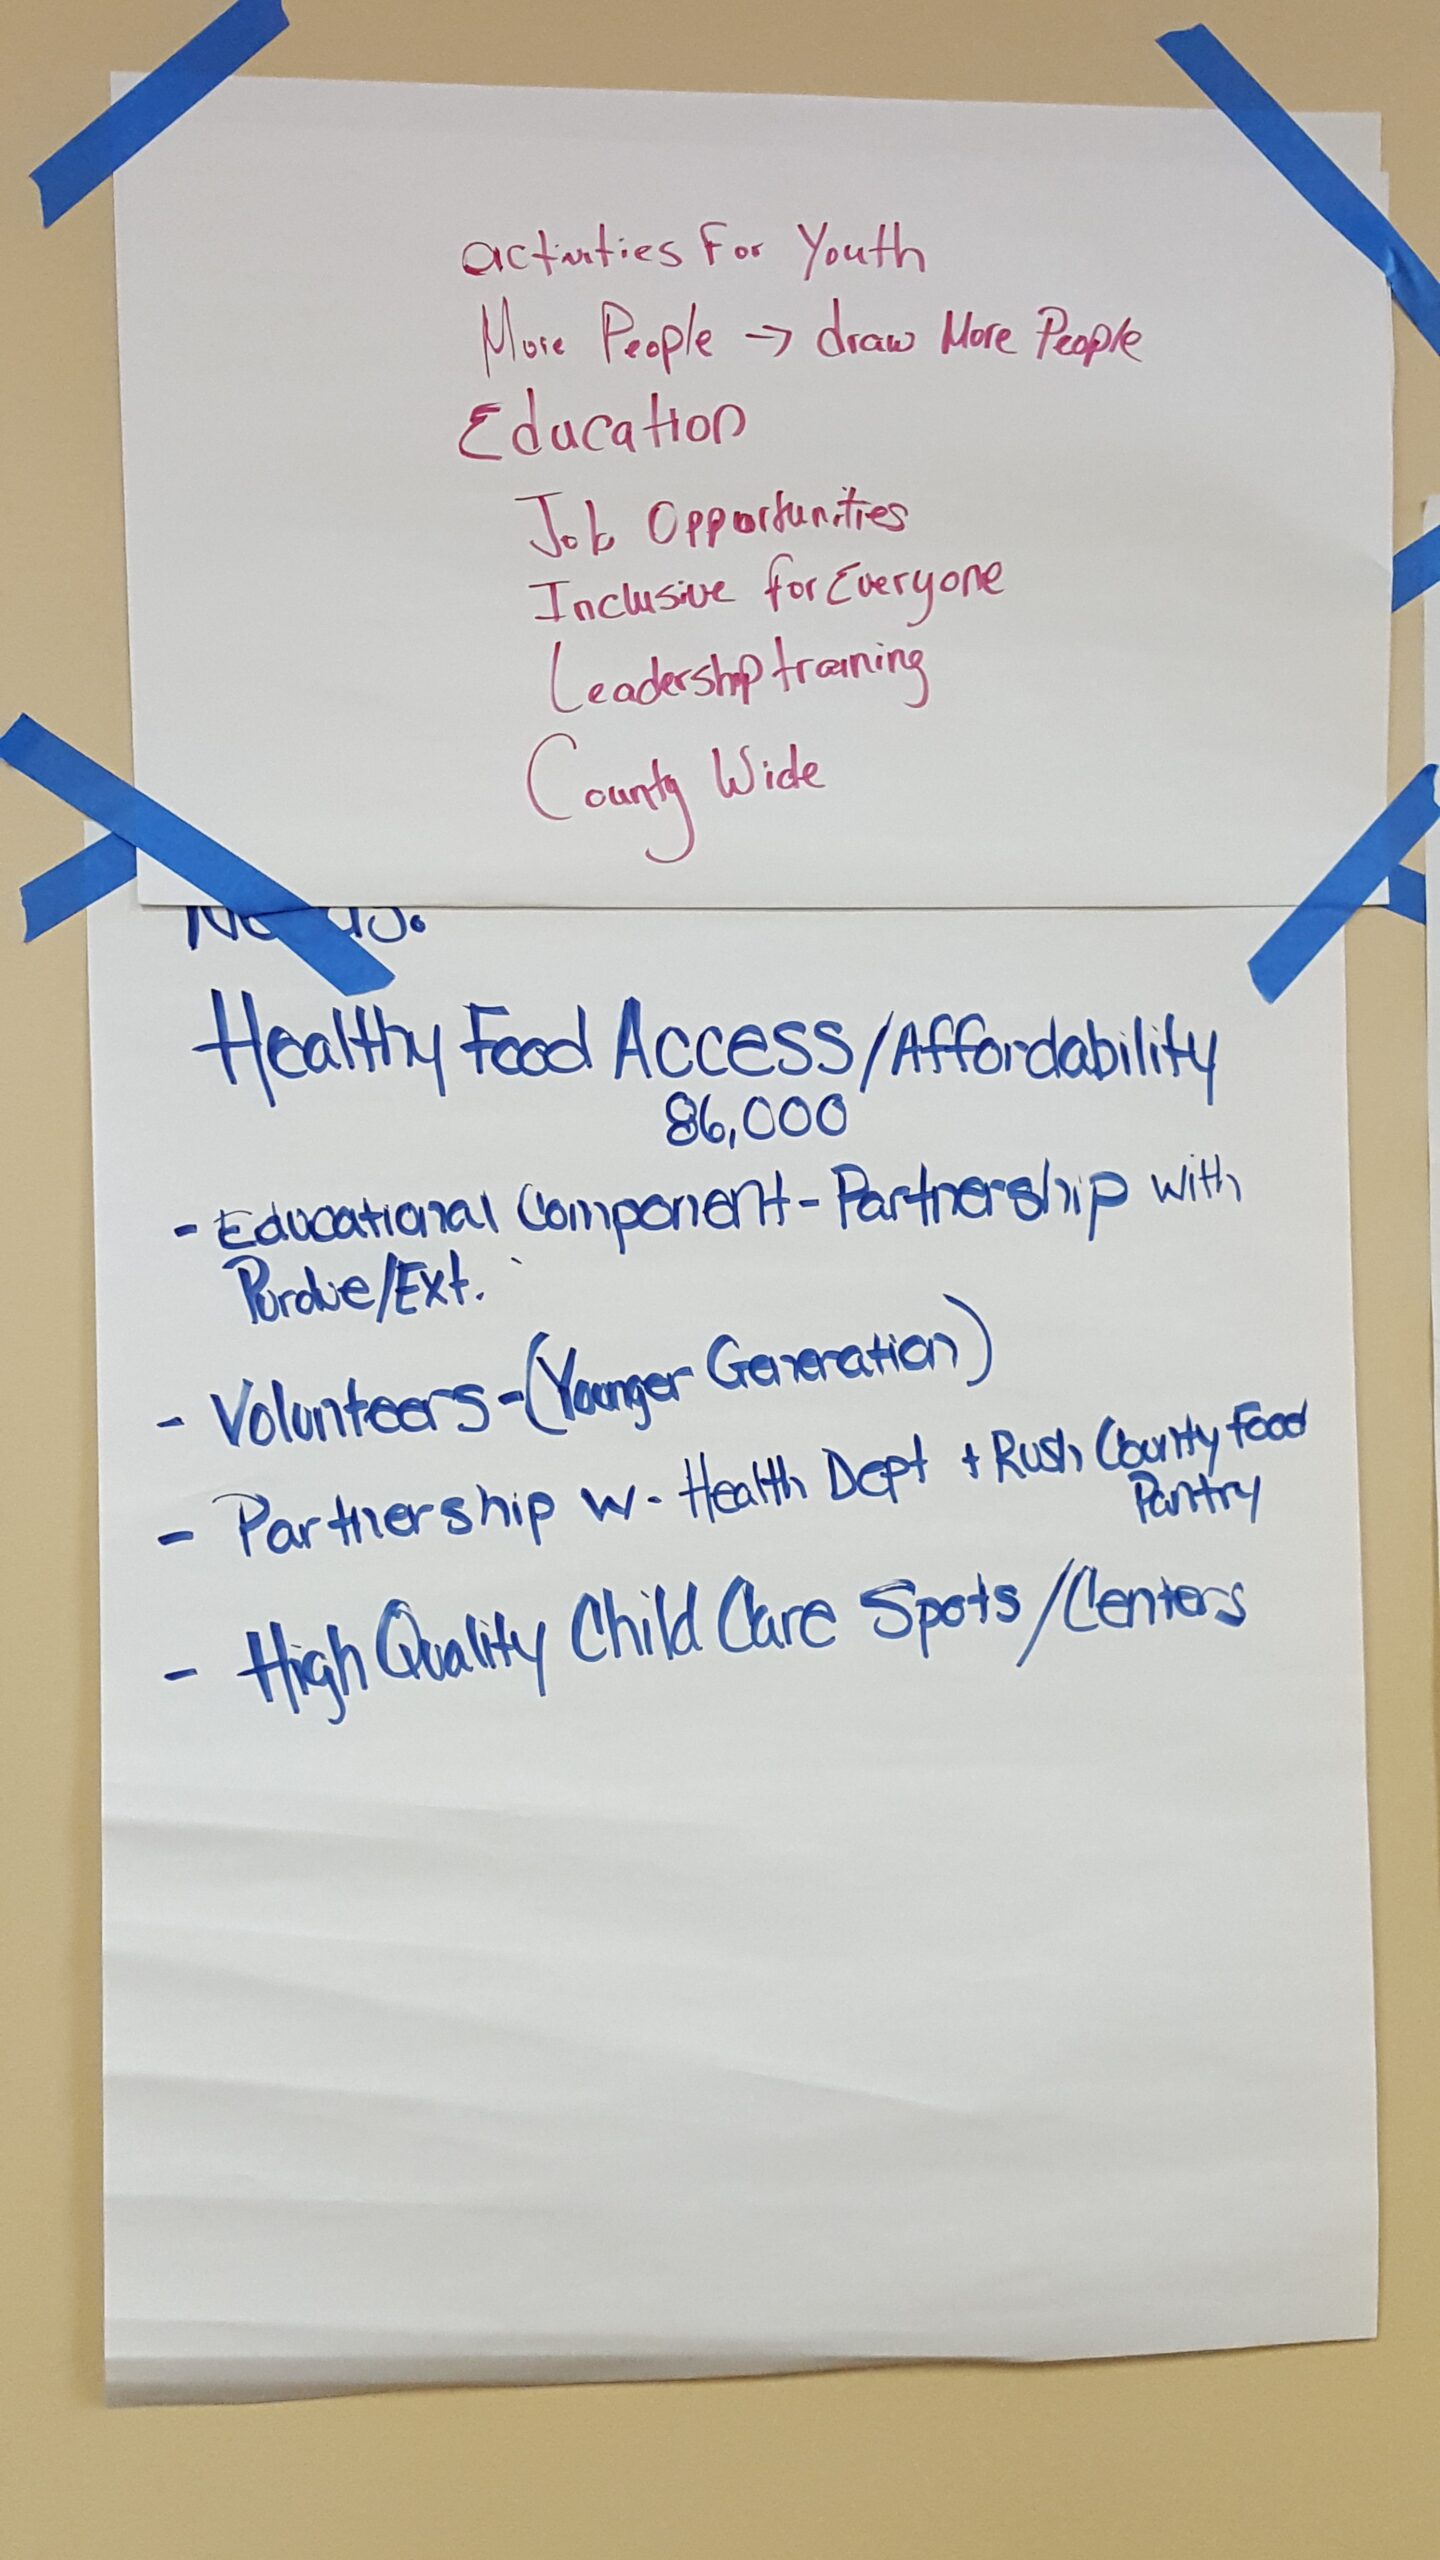 activities For Youth
More People → draw More People
Education
Job Opportunities
Inclusive for Everyone
Leadership training
County Wide
Healthy Food Access/Affordability
86,000
- Educational Component - Partnership with
Purdue/Ext.
- Volunteers - (Younger Generation)
- Partnership w. Health Dept + Rush County Food
Pantry
- High Quality Child Care Spots/Centers